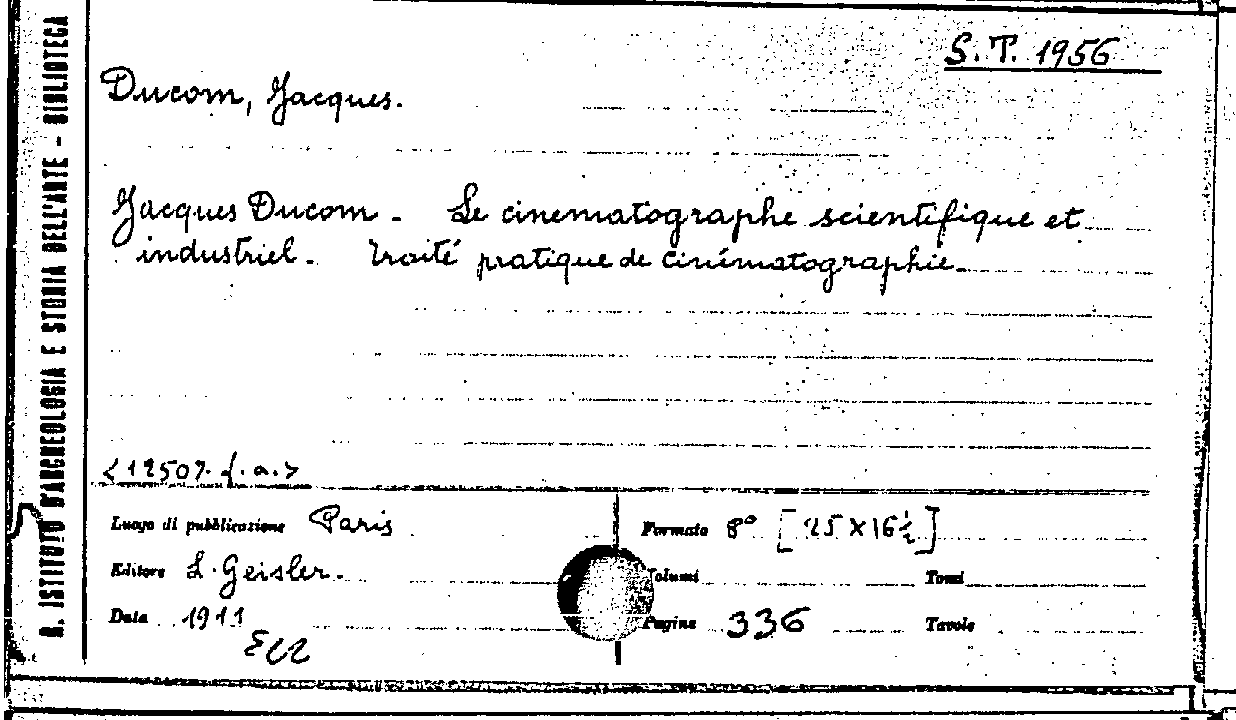 R. ISTITUTO D'ARCHEOLOGIA E STORIA DELL'ARTE - BIBLIOTECA
S.T. 1956
Ducom, Jacques.
Jacques Ducom - Le cinematographe scientifique et
industriel. Traité pratique de cinématographie.
Luogo di pubblicazione Paris
Formato 8° [25 x 16 ½]
Editore L. Geisler.
Volumi
Tomi
Data 1911
Pagine 336
Tavole